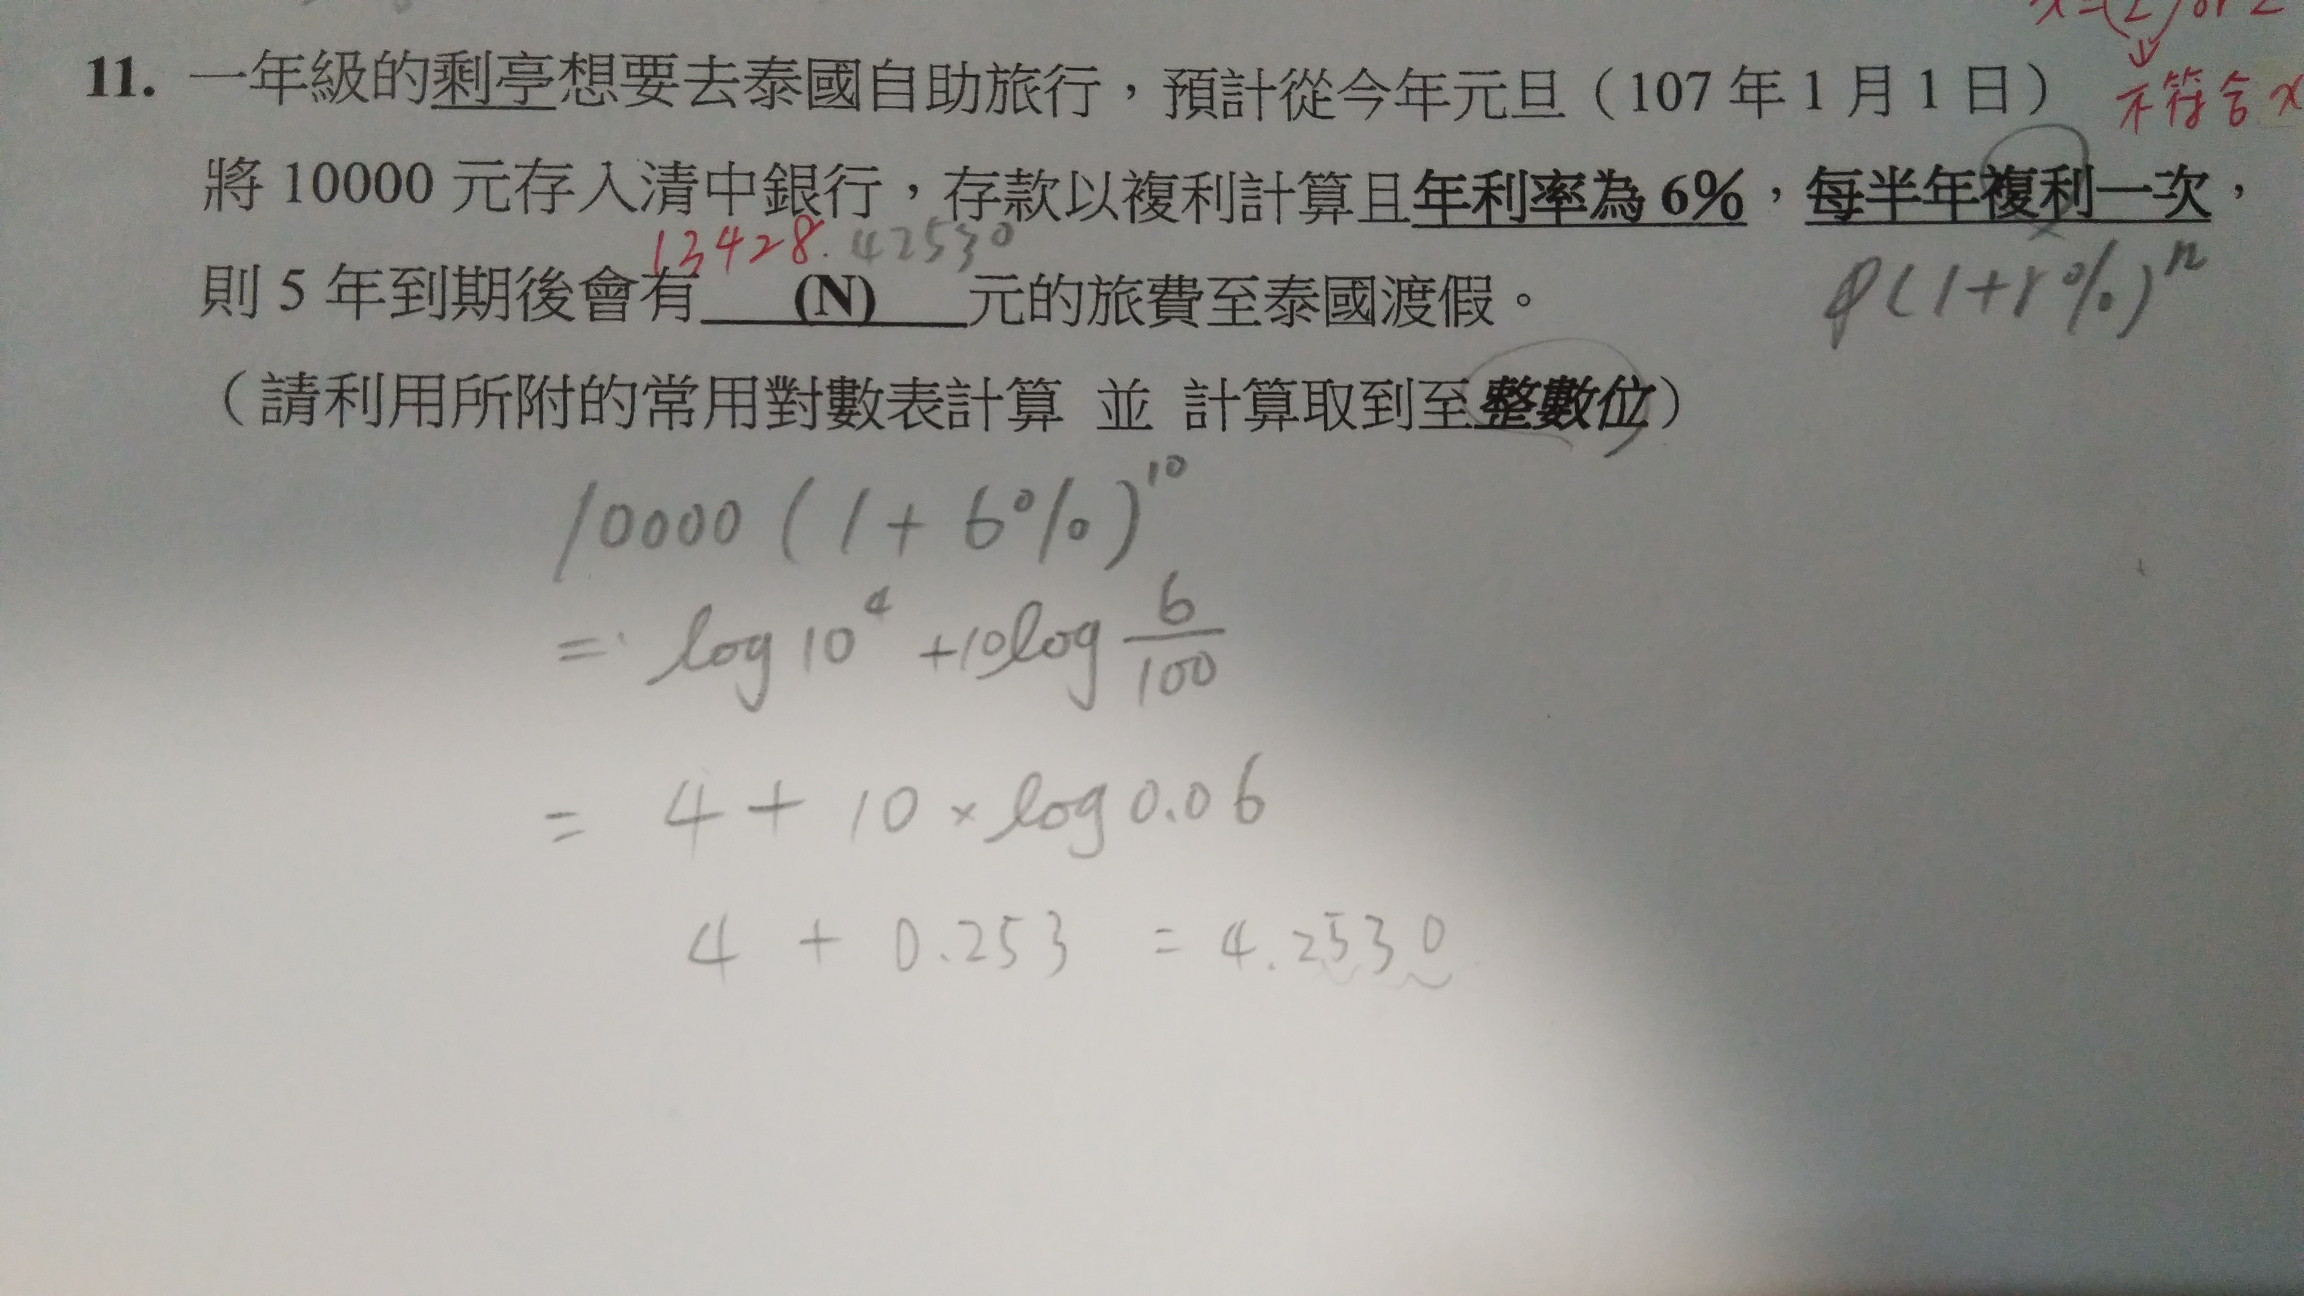 x=(2) or 2
11. 一年級的剩亭想要去泰國自助旅行，預計從今年元旦（107 年 1 月 1 日）
不符合 x
將 10000 元存入清中銀行，存款以複利計算且年利率為 6%，每半年複利一次，
13428.42530
則 5 年到期後會有 (N) 元的旅費至泰國渡假。
P(1+r%)^n
（請利用所附的常用對數表計算 並 計算取到至整數位）
10000 (1+6%)^10
= log 10^4 +10log 6/100
= 4 + 10 × log 0.06
4 + 0.253 = 4.2530